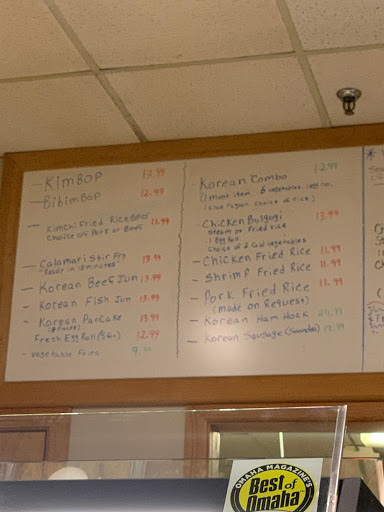 - KimBop 12.99
- BibimBop 12.99
- Kimchi Fried Rice 11.99
Choice of Pork or Beef
- Calamari Stir Fry 13.99
"Ready in 15 minutes"
- Korean Beef Jun 13.99
- Korean Fish Jun 13.99
- Korean Pancake 13.99
Fresh Egg Roll 12.99
- Vegetable Fried 9.99
- Korean Combo 12.99
1 meat item, 6 vegetables, egg roll
- Chicken Bulgogi 13.99
Steam or Fried rice
1 Egg Roll
Choice of 2 Cold vegetables
- Chicken Fried Rice 11.99
- Shrimp Fried Rice 11.99
- Pork Fried Rice 11.99
(made on Request)
- Korean Ham Hock
- Korean Sausage (Soondae)
OMAHA MAGAZINE'S
Best of
Omaha